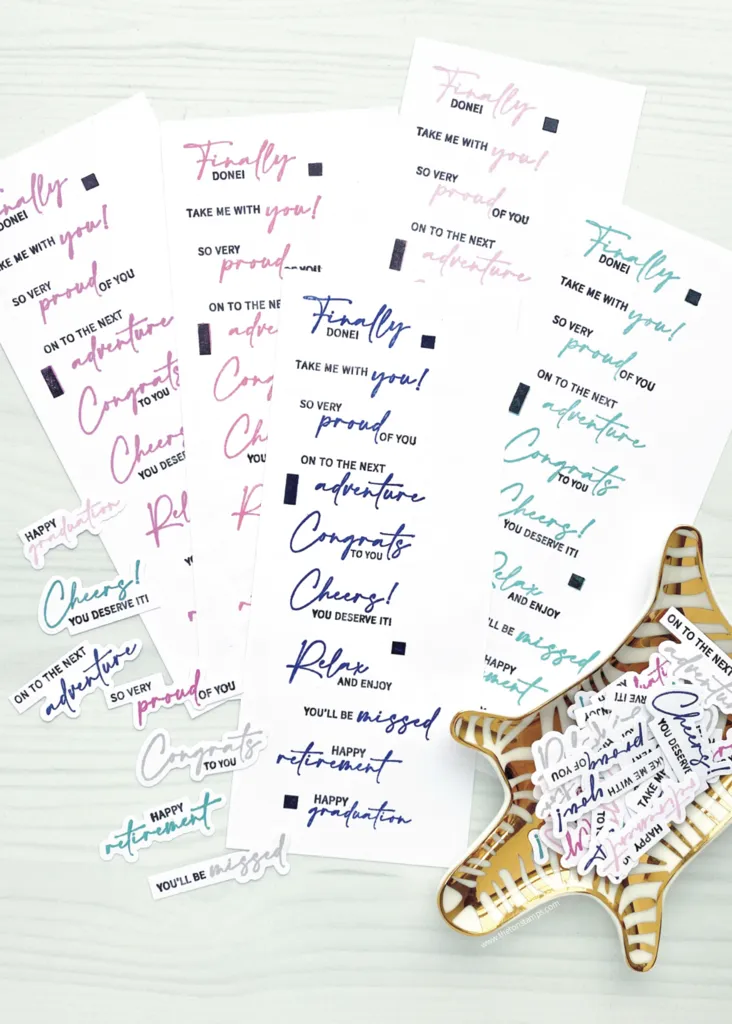 nally
DONE!
KE ME WITH you!
SO VERY
proud OF YOU
ON TO THE NEXT
adventure
Congrats
TO YOU
Cheers
YOU DESE
Rel
Finally
DONE!
TAKE ME WITH you!
SO VERY
proud
ON TO THE N
adve
Cong
Ch
YO
R
Finally
DONE!
TAKE ME WITH you!
SO VERY
proud OF YOU
ON TO THE NEXT
adventure
Finally
DONE!
TAKE ME WITH you!
SO VERY
proud OF YOU
ON TO THE NEXT
adventure
Congrats
TO YOU
Cheers!
YOU DESERVE IT!
Relax
AND ENJOY
YOU'LL BE missed
HAPPY
retirement
HAPPY
graduation
Finally
DONE!
TAKE ME WITH you!
SO VERY
proud OF YOU
ON TO THE NEXT
adventure
Congrats
TO YOU
Cheers!
YOU DESERVE IT!
elax
AND ENJOY
'LL BE missed
HAPPY
ement
HAPPY
graduation
Cheers!
YOU DESERVE IT!
ON TO THE NEXT
adventure
SO VERY
proud OF YOU
Congrats
TO YOU
HAPPY
retirement
YOU'LL BE missed
ON TO THE NEX
adventure
Cheers!
YOU DESERVE
proud
OF YOU
TAKE ME WITH
you!
TAKE ME
HAPPY
retirement